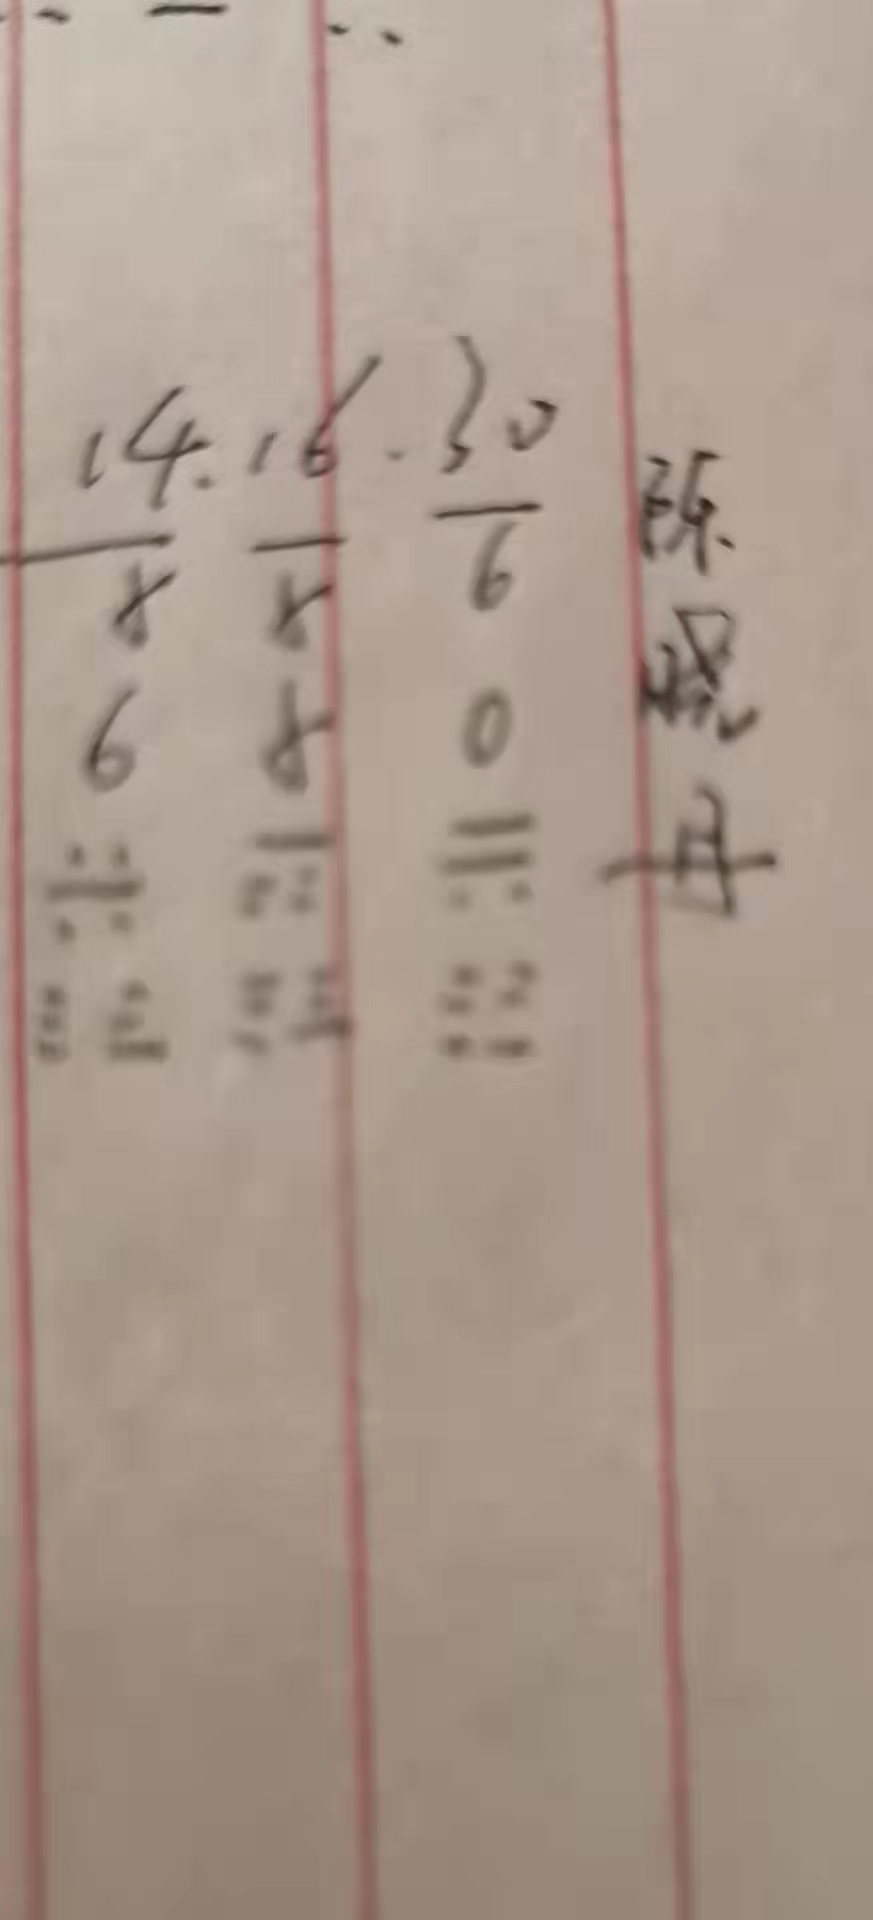 14.16.30
8 8 6
6 8 0
陈
丹